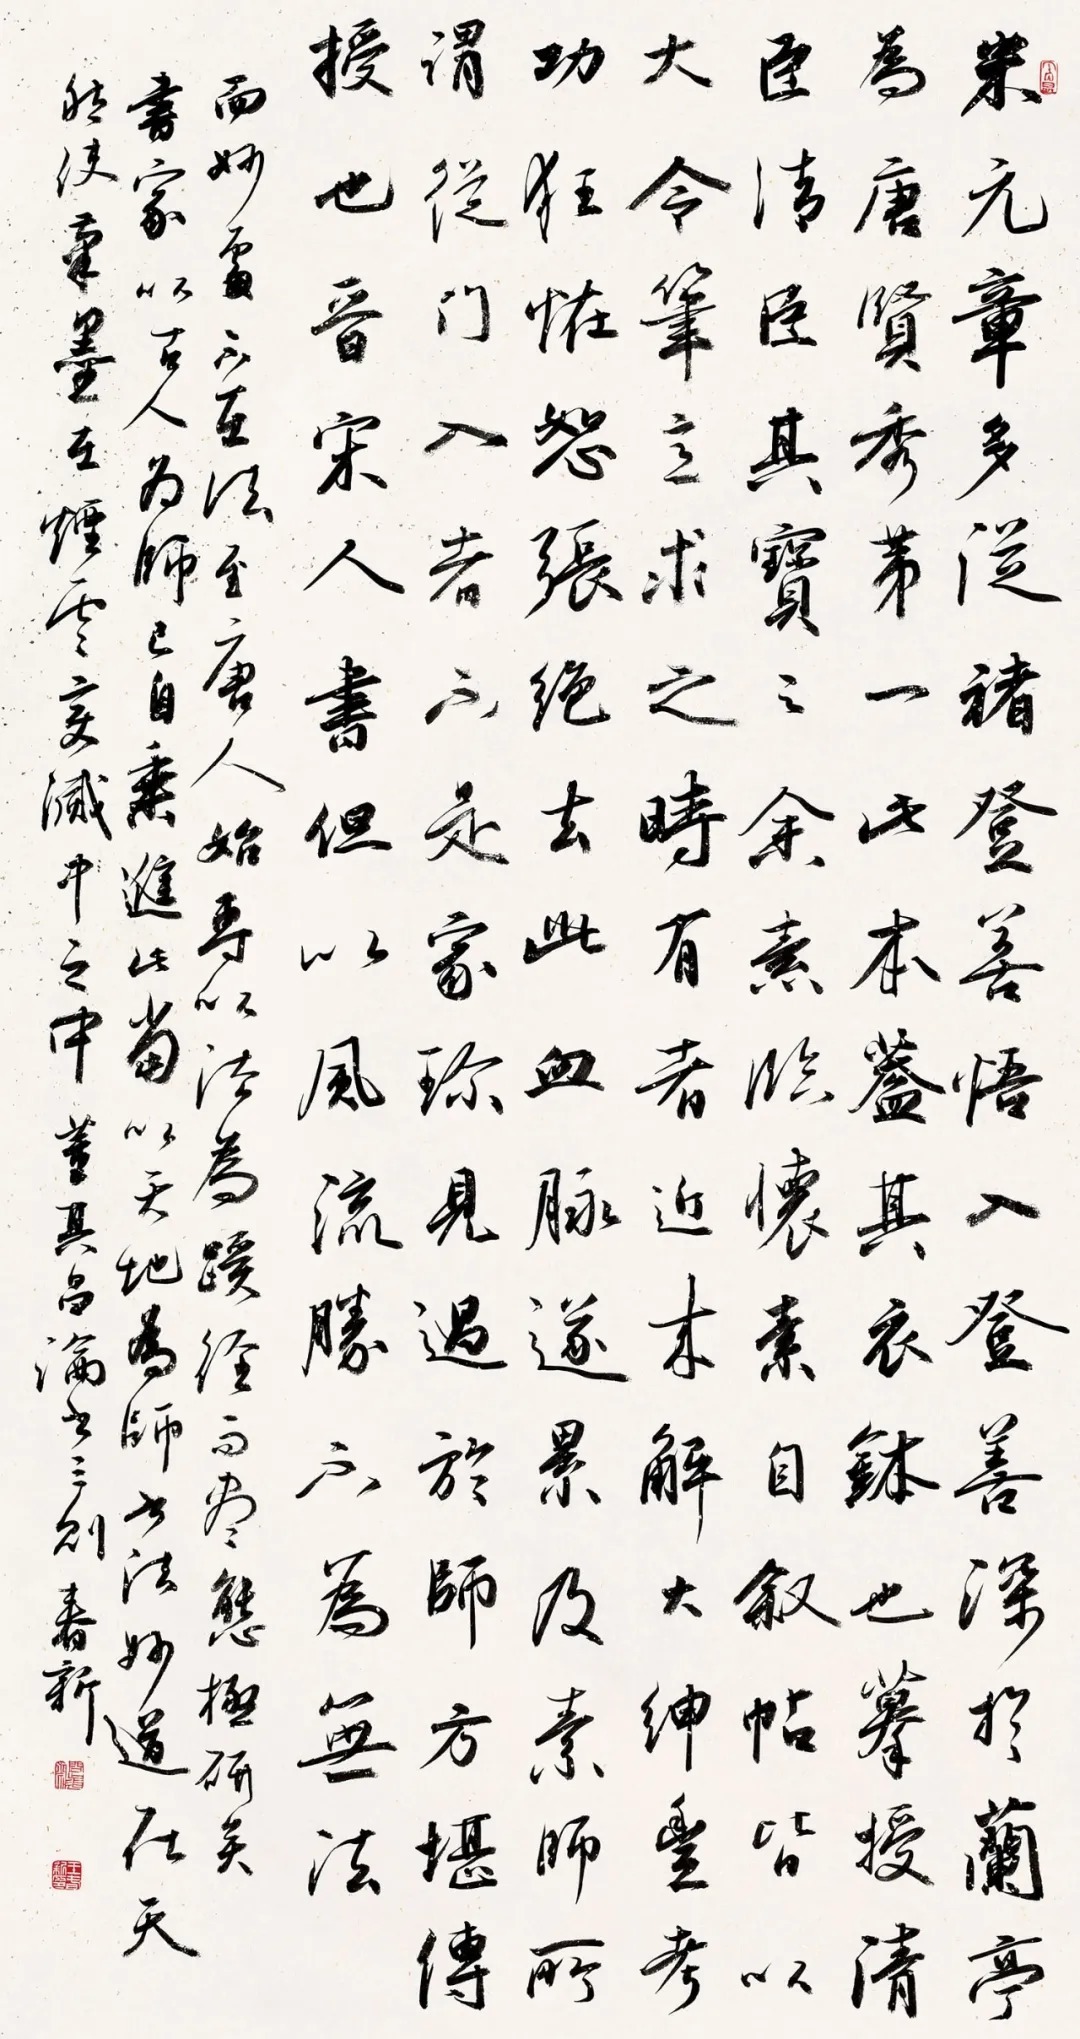 米元章多從褚登善悟入登善深於蘭亭
為唐賢秀第一此本蓋其衣鉢也摹授清
臣清臣其寶之余素臨懷素自敘帖皆以
大令筆意求之時有者近未解大紳豊考
功狂怪怒張絕去此血脉遂累及素師所
謂從門入者不是家珍見過於師方堪傳
授也晉宋人書但以風流勝不為無法
而妙處不在法至唐人始專以法為蹊徑而盡態極妍矣
書家以古人為師已自乘進此當以天地為師書法妙道在天
能使筆墨在煙雲變滅中之中 董其昌論書三則 春新